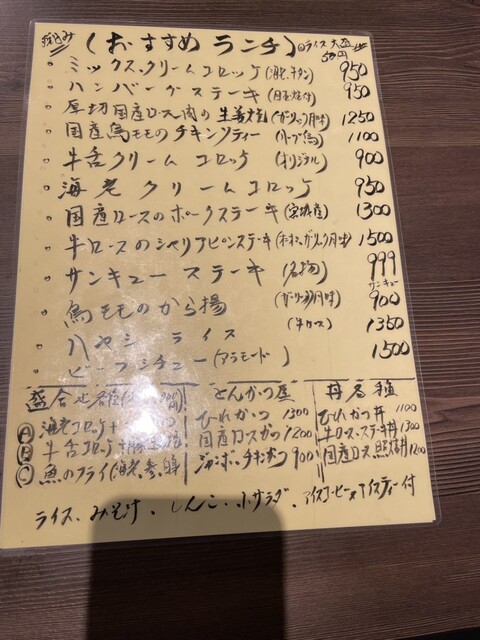 税込み (おすすめ ランチ) ライス 大盛 50円
ミックス.クリームコロッケ (海老.牛タン) 950
ハンバーグステーキ (目玉焼付) 950
厚切国産ロース肉の生姜焼 (ガーリック風味) 1250
国産鳥モモのチキンソティー (ハーブ鳥) 1100
牛舌クリーム コロッケ (オリジナル) 900
海老クリームコロッケ 950
国産ロースのポークステーキ (宮崎産) 1300
牛ロースのシャリアピンステーキ 1500
サンキューステーキ (名物) 999 サンキュー
鳥モモのから揚 (ガーリック風味) 900
ハヤシ ライス (牛ロース) 1350
ビーフシチュー (アラモード) 1500
盛合せ各種
Ⓐ 海老コロッケ+
Ⓑ 牛舌コロッケ+
Ⓒ 魚のフライ
とんかつ屋
ひれかつ 1300
国産ロースかつ 1200
ジャンボ.チキンかつ 900
丼各種
ひれかつ丼 1100
牛ロース.ステーキ丼 1300
国産ロース照焼丼 1200
ライス、みそ汁、しんこ、小サラダ、アイスコーヒー又アイスティー付